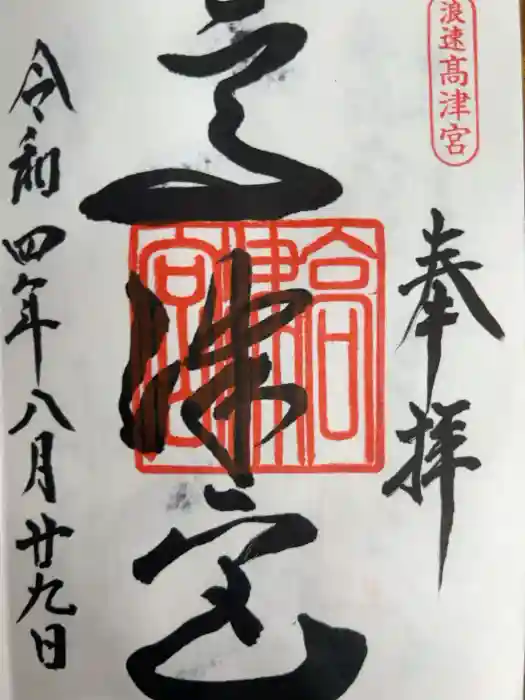 浪速高津宮
奉拝
高津宮
高津宮
令和四年八月廿九日